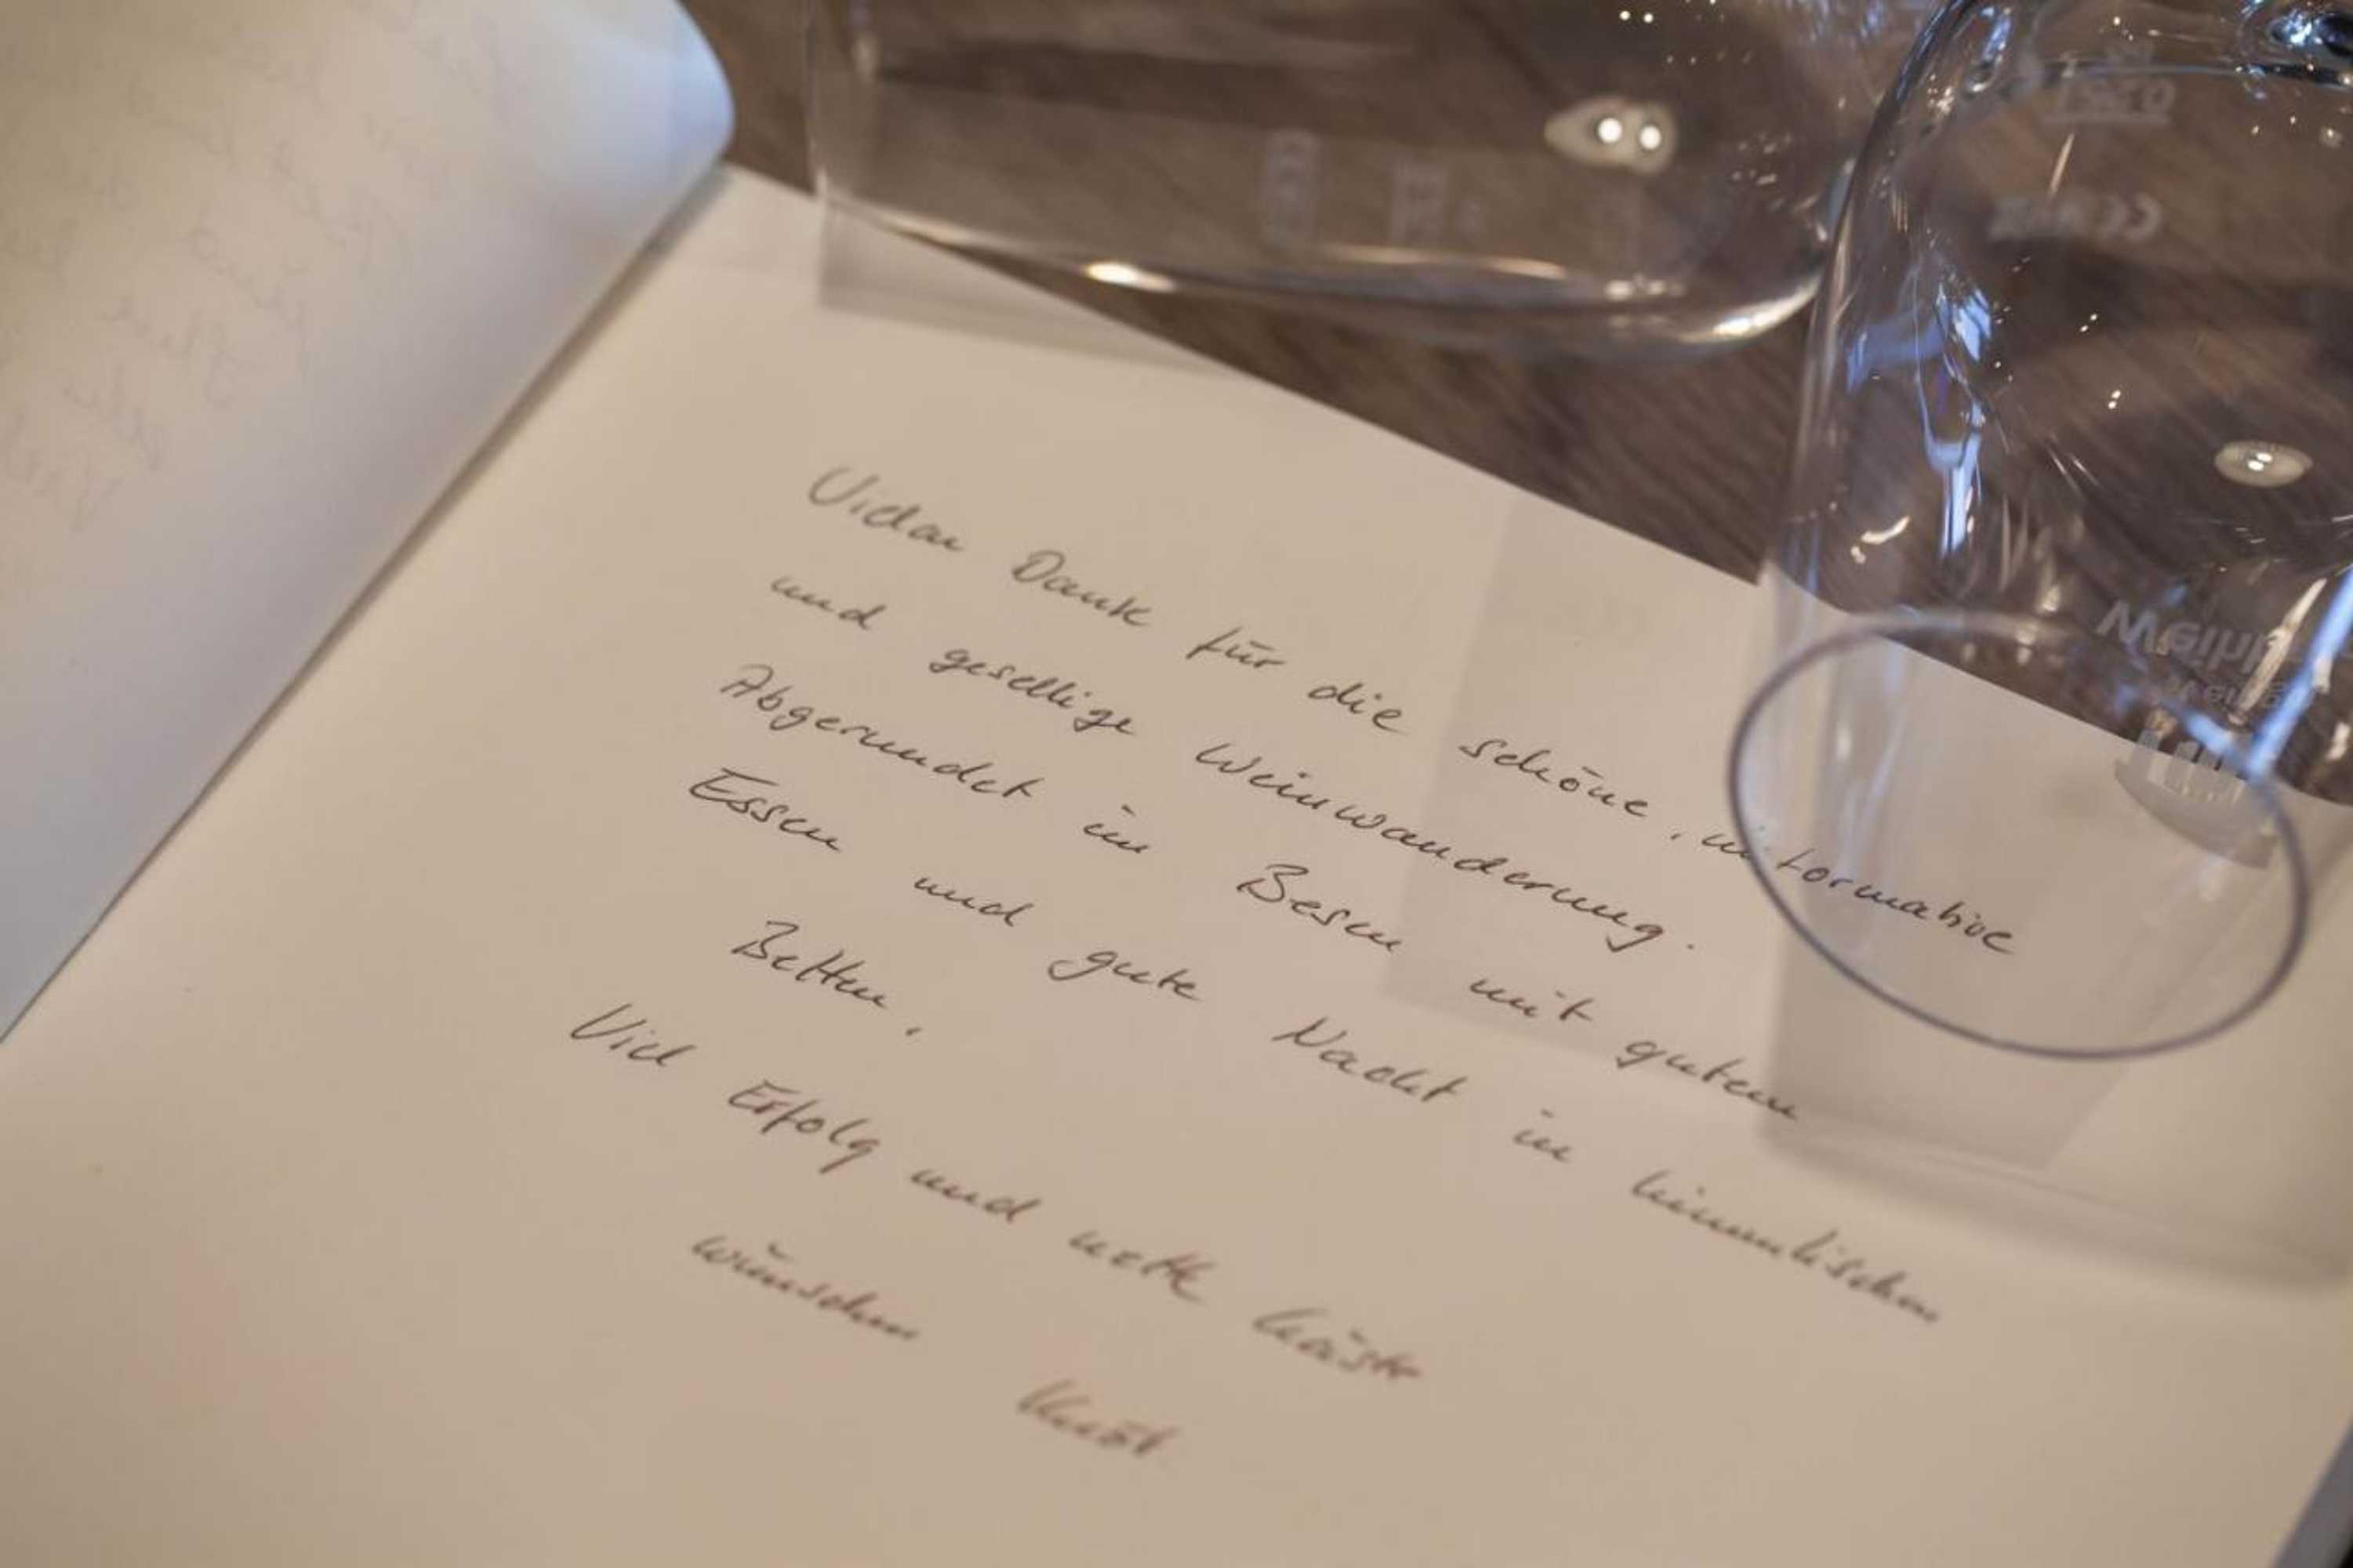 Vielen Dank für die schöne, informative
und gesellige Weinwanderung.
Abgerundet im Besen mit gutem
Essen und gute Nacht in himmlischen
Betten.
Viel Erfolg und nette Gäste
wünschen
0,2 l
CE